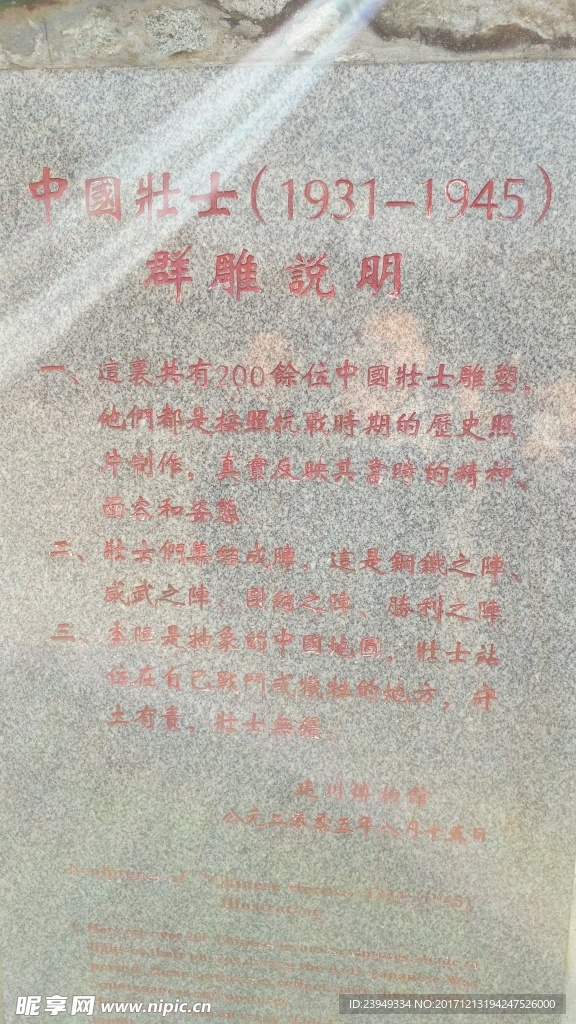 中國壯士(1931-1945)
群雕説明
一、這裏共有200餘位中國壯士雕塑，
他們都是按照抗戰時期的歷史照
片制作，真實反映其當時的精神、
面容和姿態
二、壯士們集結成陣，這是鋼鐵之陣、
威武之陣、團結之陣、勝利之陣
三、本陣是抽象的中國地圖，壯士站
位在自己戰鬥或犧牲的地方，守
土有責，壯士無疆
建川博物館
公元二零零五年八月十五日
Sculptures of "Chinese Heroes 1931-1945"
Illustration
昵享网 www.nipic.cn
ID:23949334 NO:20171213194247526000